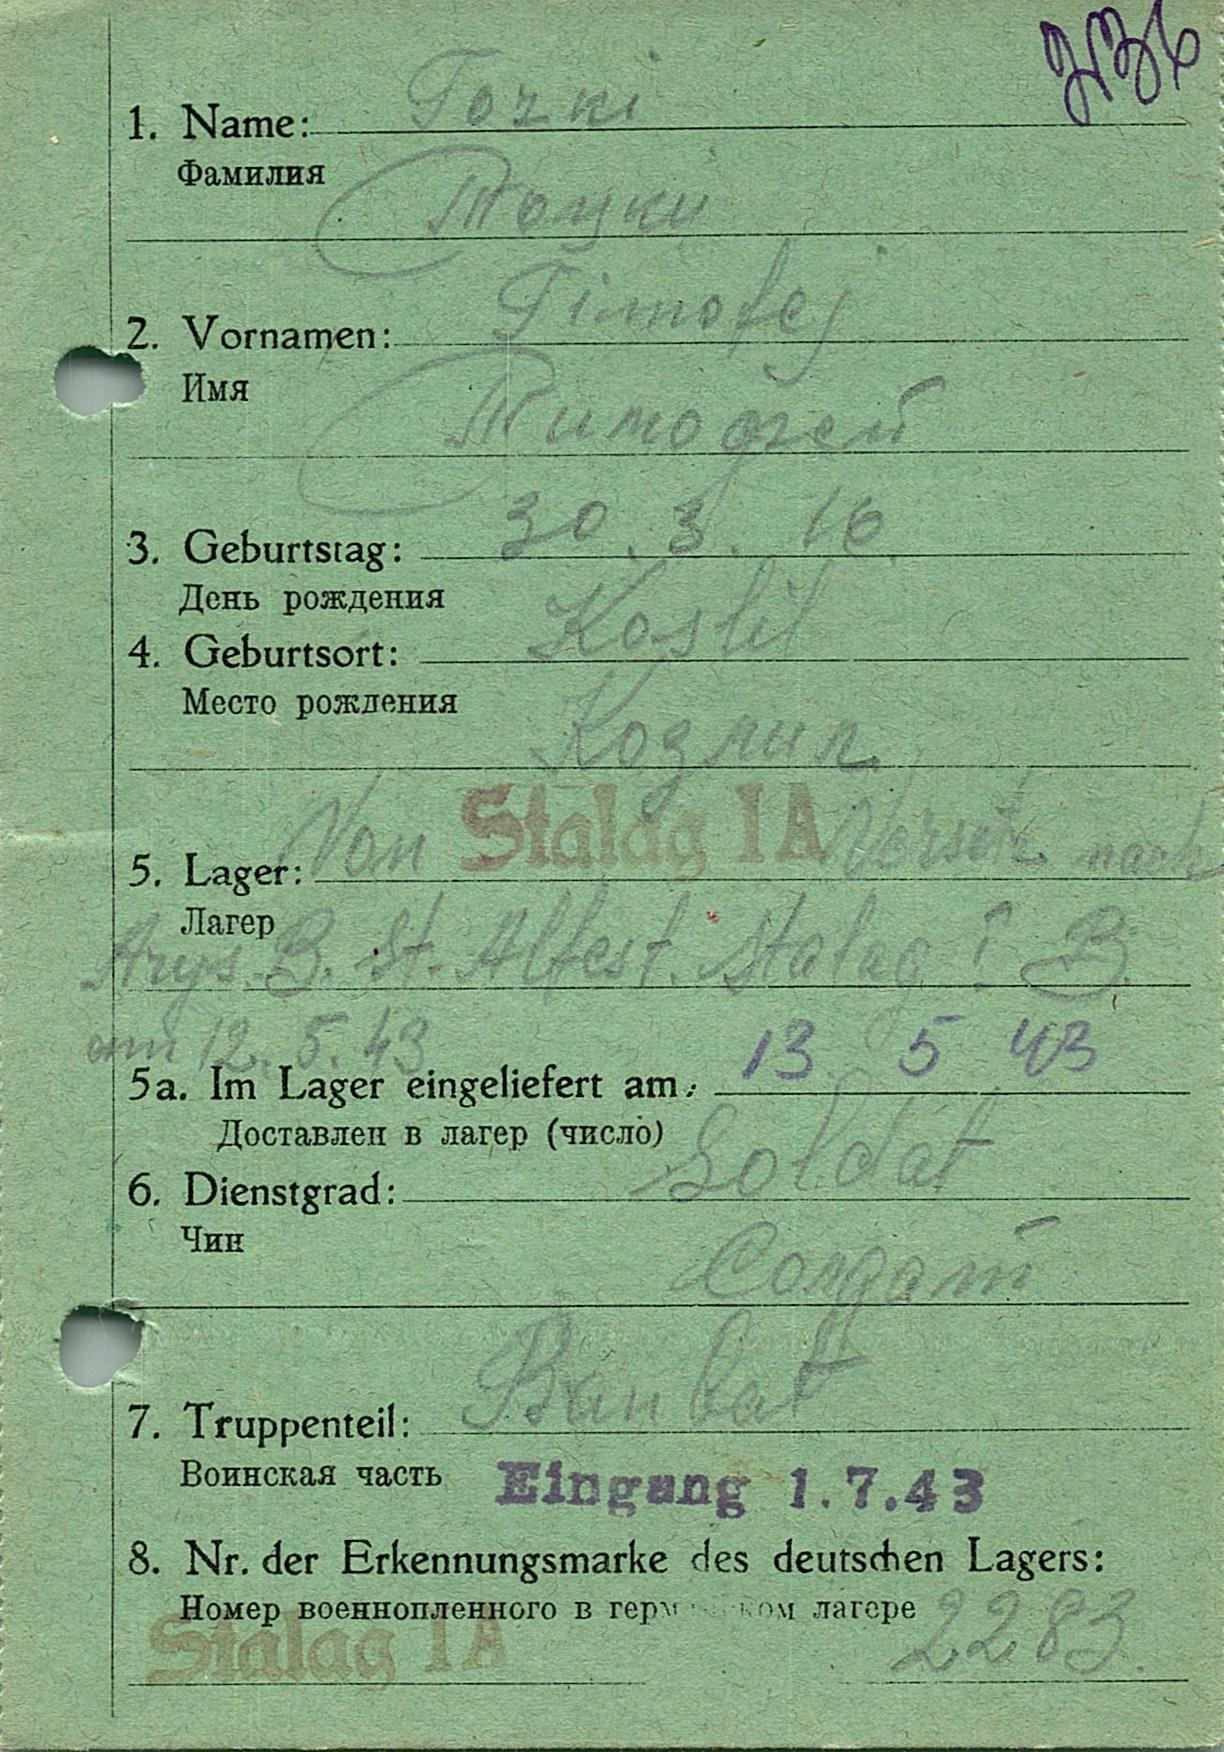 236
1. Name: Tozki
Фамилия
Тоцки
2. Vornamen: Timofej
Имя
Тимофей
3. Geburtstag: 30. 3. 16.
День рождения
4. Geburtsort: Koslil
Место рождения
Козлил
Von Stalag I A Versetz. nach
5. Lager:
Лагер
Arys. B. St. Alfest. Stalag I B.
am 12. 5. 43
5a. Im Lager eingeliefert am: 13. 5. 43
Доставлен в лагер (число)
6. Dienstgrad: Soldat
Чин
Солдат
7. Truppenteil: Baubat
Воинская часть
Eingang 1.7.43
8. Nr. der Erkennungsmarke des deutschen Lagers:
Номер военнопленного в германском лагере
2283.
Stalag I A